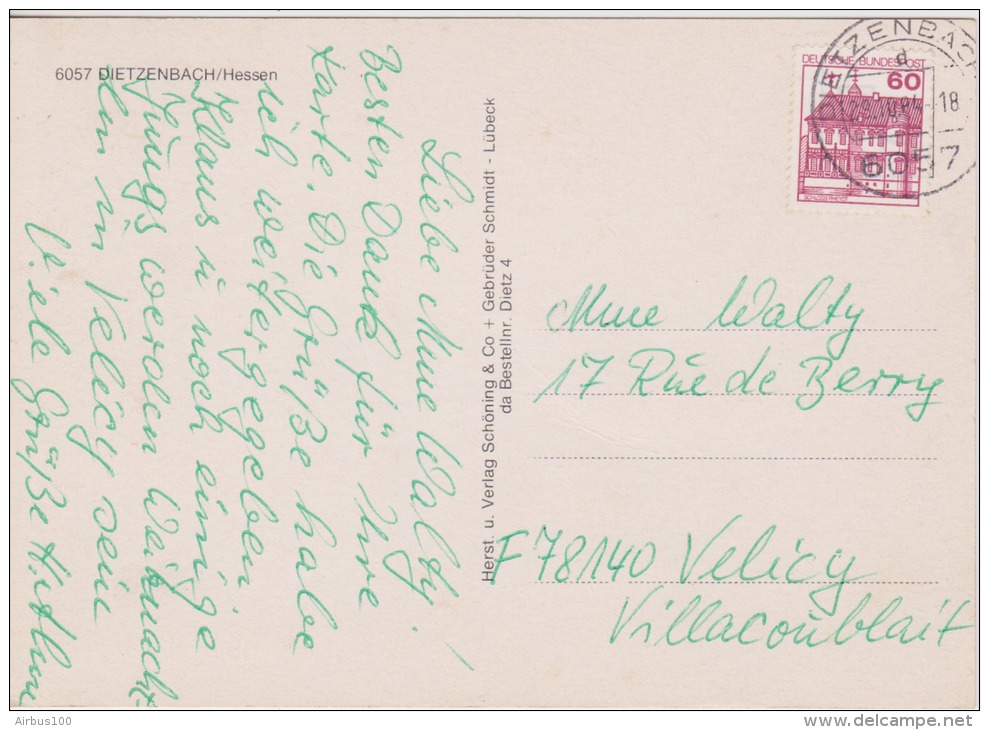 6057 DIETZENBACH/Hessen
Liebe Mme Walty!
Besten Dank für Ihre
Karte. Die Grüße habe
ich weitergegeben
Klaus u noch einige
Jungs werden Weihnacht
in Velicy sein
Viele Grüße
Herst. u. Verlag Schöning & Co + Gebrüder Schmidt - Lübeck
da Bestellnr. Dietz 4
DEUTSCHE BUNDESPOST
60
SCHLOSS RHEYDT
DIETZENBACH
d
-18
6057
Mme Walty
17 Rue de Berry
F 78140 Velicy
Villacoublait
Airbus100
delcampe.net